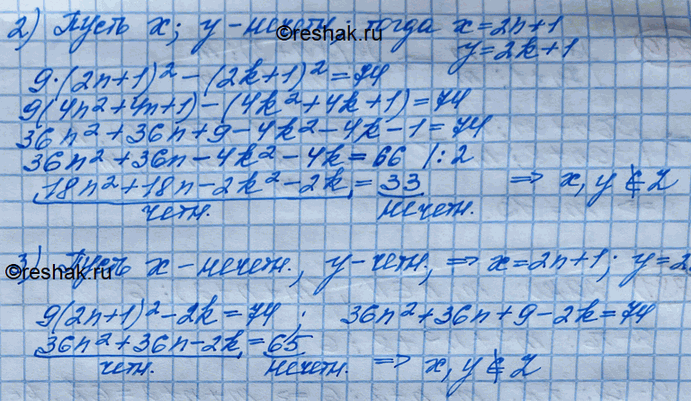 2) Пусть x; y - нечетн. тогда x=2n+1
©reshak.ru
y=2k+1
9·(2n+1)²-(2k+1)²=74
9(4n²+4n+1)-(4k²+4k+1)=74
36n²+36n+9-4k²-4k-1=74
36n²+36n-4k²-4k=66 /:2
18n²+18n-2k²-2k=33 => x,y∉Z
четн. нечетн.
3) Пусть x-нечетн., y-четн, => x=2n+1; y=2
©reshak.ru
9(2n+1)²-2k=74; 36n²+36n+9-2k=74
36n²+36n-2k=65
четн. нечетн. => x,y∉Z